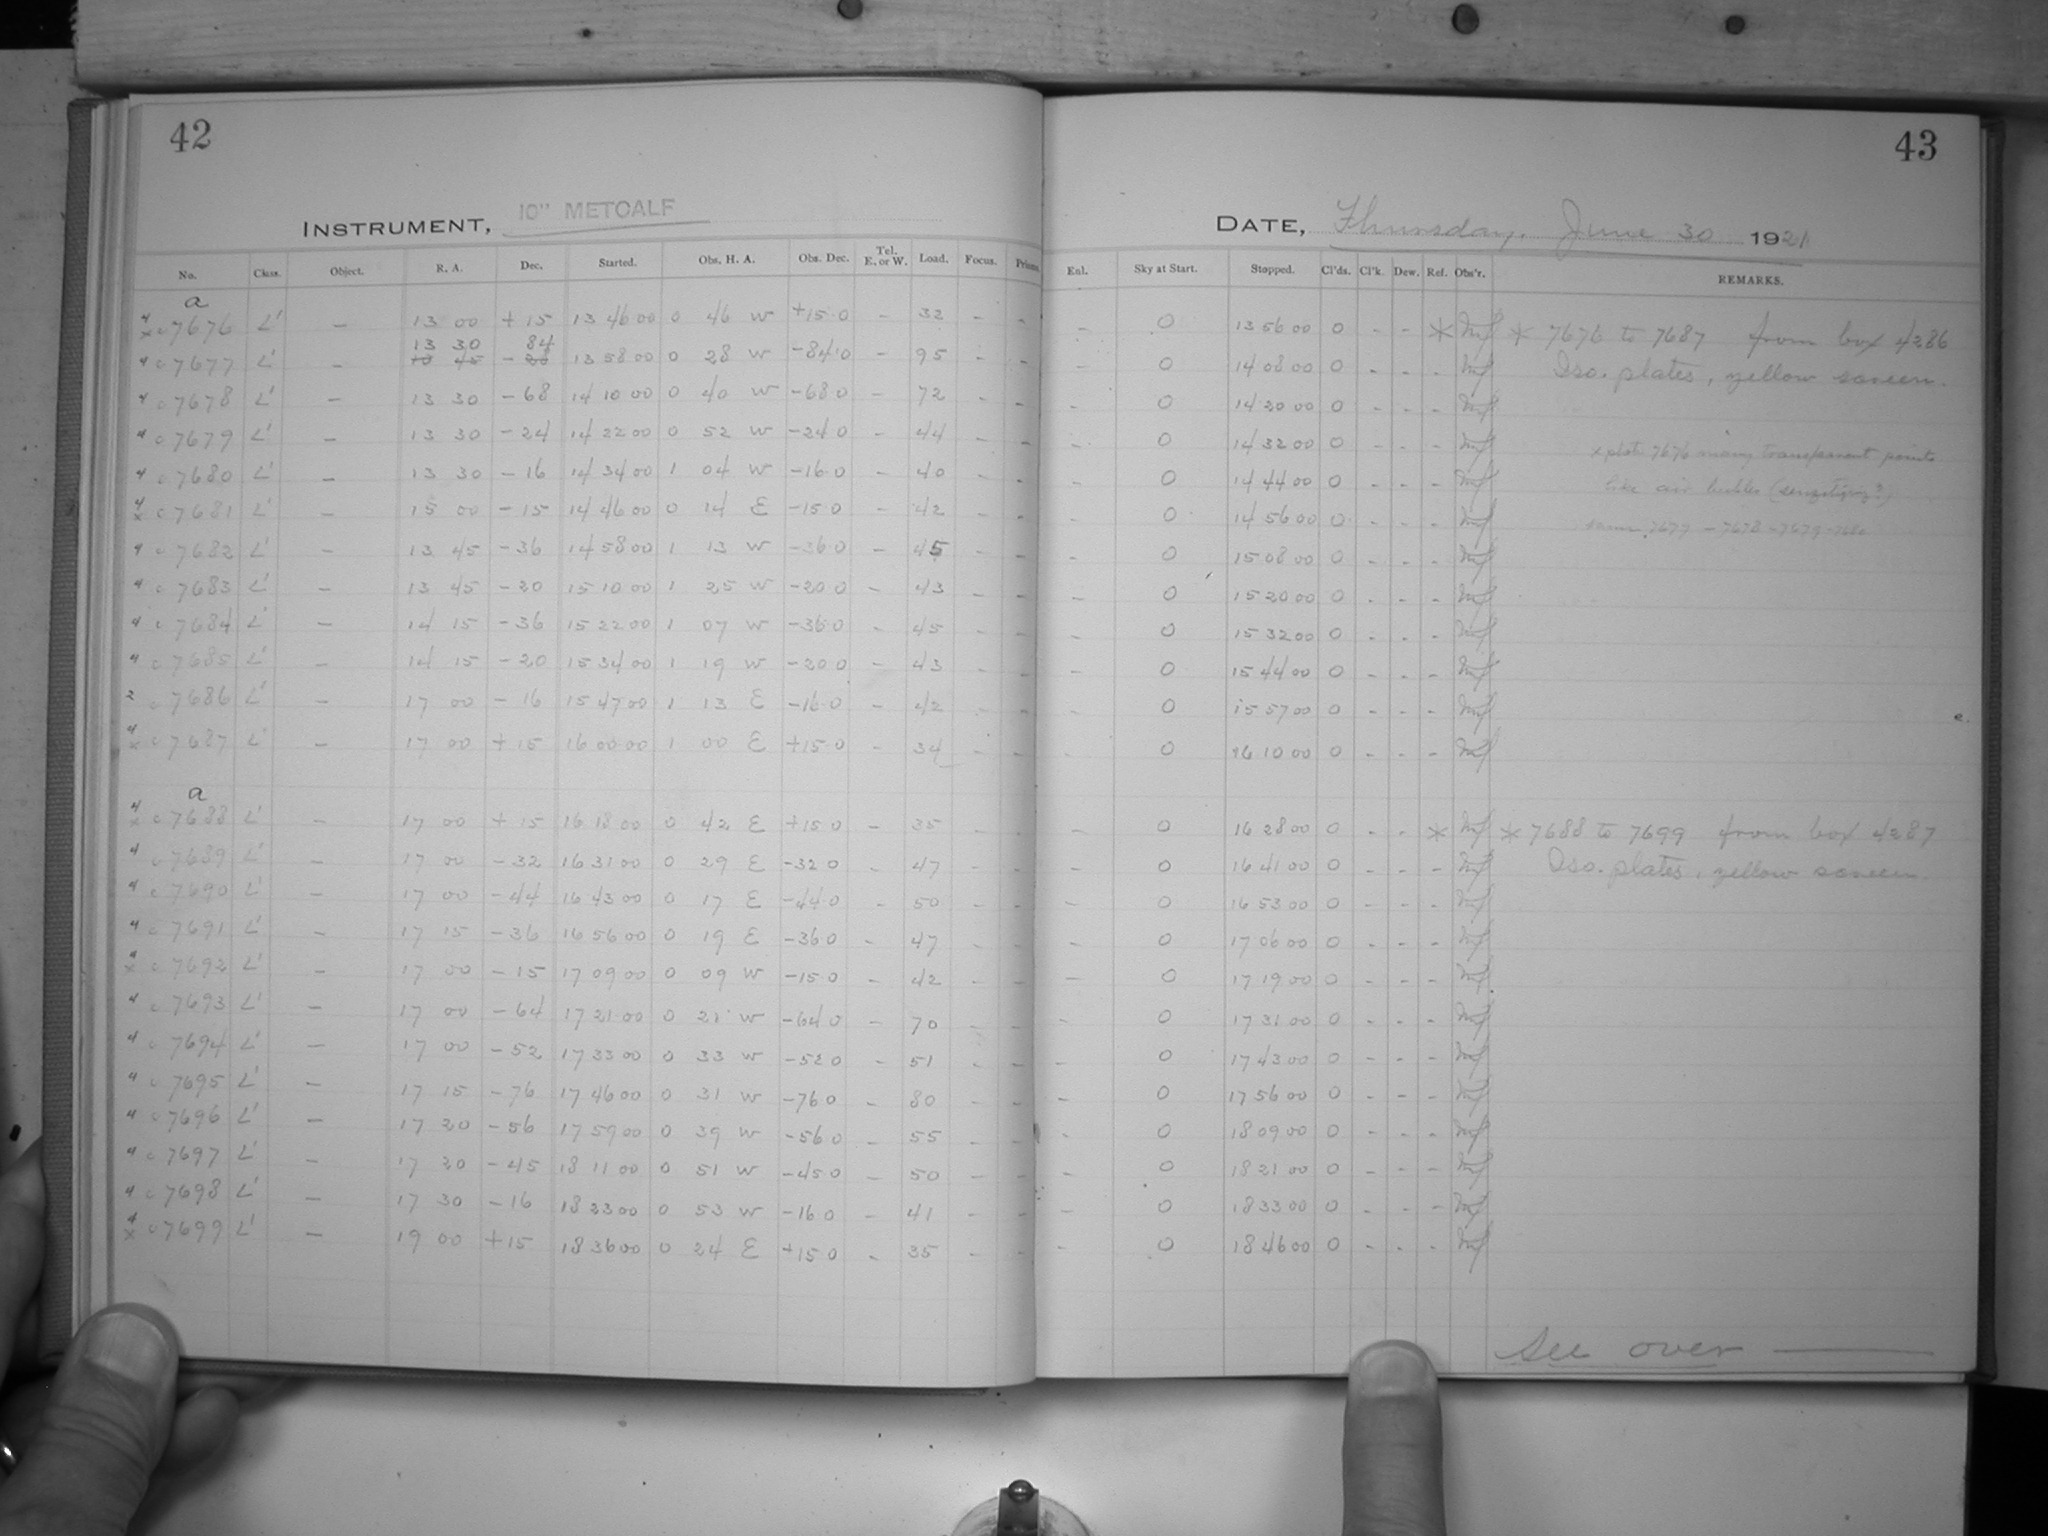 42
INSTRUMENT, 10" METCALF
No. Class. Object. R. A. Dec. Started. Obs. H. A. Obs. Dec. Tel. E. or W. Load. Focus. Prisms.
a
7676 L' — 13 00 +15 13 46 00 0 46 W +15 0 - 32 - -
13 30 84
7677 L' — 13 45 -28 13 58 00 0 28 W -84 0 - 95 - -
7678 L' — 13 30 -68 14 10 00 0 40 W -68 0 - 72 - -
7679 L' — 13 30 -24 14 22 00 0 52 W -24 0 - 44 - -
7680 L' — 13 30 -16 14 34 00 1 04 W -16 0 - 40 - -
7681 L' — 15 00 -15 14 46 00 0 14 E -15 0 - 42 - -
7682 L' — 13 45 -36 14 58 00 1 13 W -36 0 - 45 - -
7683 L' — 13 45 -20 15 10 00 1 25 W -20 0 - 43 - -
7684 L' — 14 15 -36 15 22 00 1 07 W -36 0 - 45 - -
7685 L' — 14 15 -20 15 34 00 1 19 W -20 0 - 43 - -
7686 L' — 17 00 -16 15 47 00 1 13 E -16 0 - 42 - -
7687 L' — 17 00 +15 16 00 00 1 00 E +15 0 - 34 - -
a
7688 L' — 17 00 +15 16 18 00 0 42 E +15 0 - 35 - -
7689 L' — 17 00 -32 16 31 00 0 29 E -32 0 - 47 - -
7690 L' — 17 00 -44 16 43 00 0 17 E -44 0 - 50 - -
7691 L' — 17 15 -36 16 56 00 0 19 E -36 0 - 47 - -
7692 L' — 17 00 -15 17 09 00 0 09 W -15 0 - 42 - -
7693 L' — 17 00 -64 17 21 00 0 21 W -64 0 - 70 - -
7694 L' — 17 00 -52 17 33 00 0 33 W -52 0 - 51 - -
7695 L' — 17 15 -76 17 46 00 0 31 W -76 0 - 80 - -
7696 L' — 17 20 -56 17 59 00 0 39 W -56 0 - 55 - -
7697 L' — 17 20 -45 18 11 00 0 51 W -45 0 - 50 - -
7698 L' — 17 30 -16 18 23 00 0 53 W -16 0 - 41 - -
7699 L' — 19 00 +15 18 36 00 0 24 E +15 0 - 35 - -
43
DATE, Thursday, June 30 1921
Enl. Sky at Start. Stopped. Cl'ds. Cl'k. Dew. Ref. Obs'r. REMARKS.
- 0 13 56 00 0 - - * * 7676 to 7687 from box 4286
- 0 14 08 00 0 - - - Iso. plates, yellow screen.
- 0 14 20 00 0 - - -
- 0 14 32 00 0 - - - x plate 7676 many transparent points
- 0 14 44 00 0 - - - like air bubbles
- 0 14 56 00 0 - - - same 7677 - 7678 - 7679 - 7680
- 0 15 08 00 0 - - -
- 0 15 20 00 0 - - -
- 0 15 32 00 0 - - -
- 0 15 44 00 0 - - -
- 0 15 57 00 0 - - -
- 0 16 10 00 0 - - -
- 0 16 28 00 0 - - * * 7688 to 7699 from box 4287
- 0 16 41 00 0 - - - Iso. plates, yellow screen
- 0 16 53 00 0 - - -
- 0 17 06 00 0 - - -
- 0 17 19 00 0 - - -
- 0 17 31 00 0 - - -
- 0 17 43 00 0 - - -
- 0 17 56 00 0 - - -
- 0 18 09 00 0 - - -
- 0 18 21 00 0 - - -
- 0 18 33 00 0 - - -
- 0 18 46 00 0 - - -
See over —